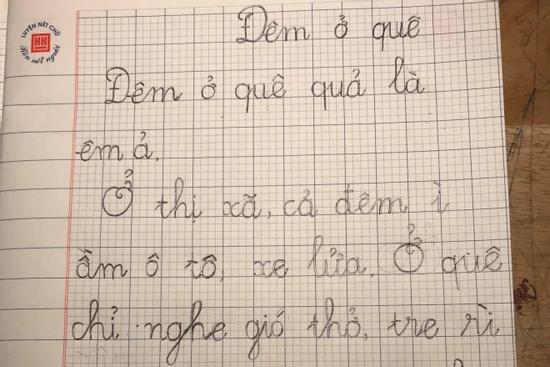 LUYỆN NÉT CHỮ
HH
Rèn nết người
Đêm ở quê
Đêm ở quê quả là
êm ả.
Ở thị xã, cả đêm ì
ầm ô tô, xe lửa. Ở quê
chỉ nghe gió thổ, tre rì